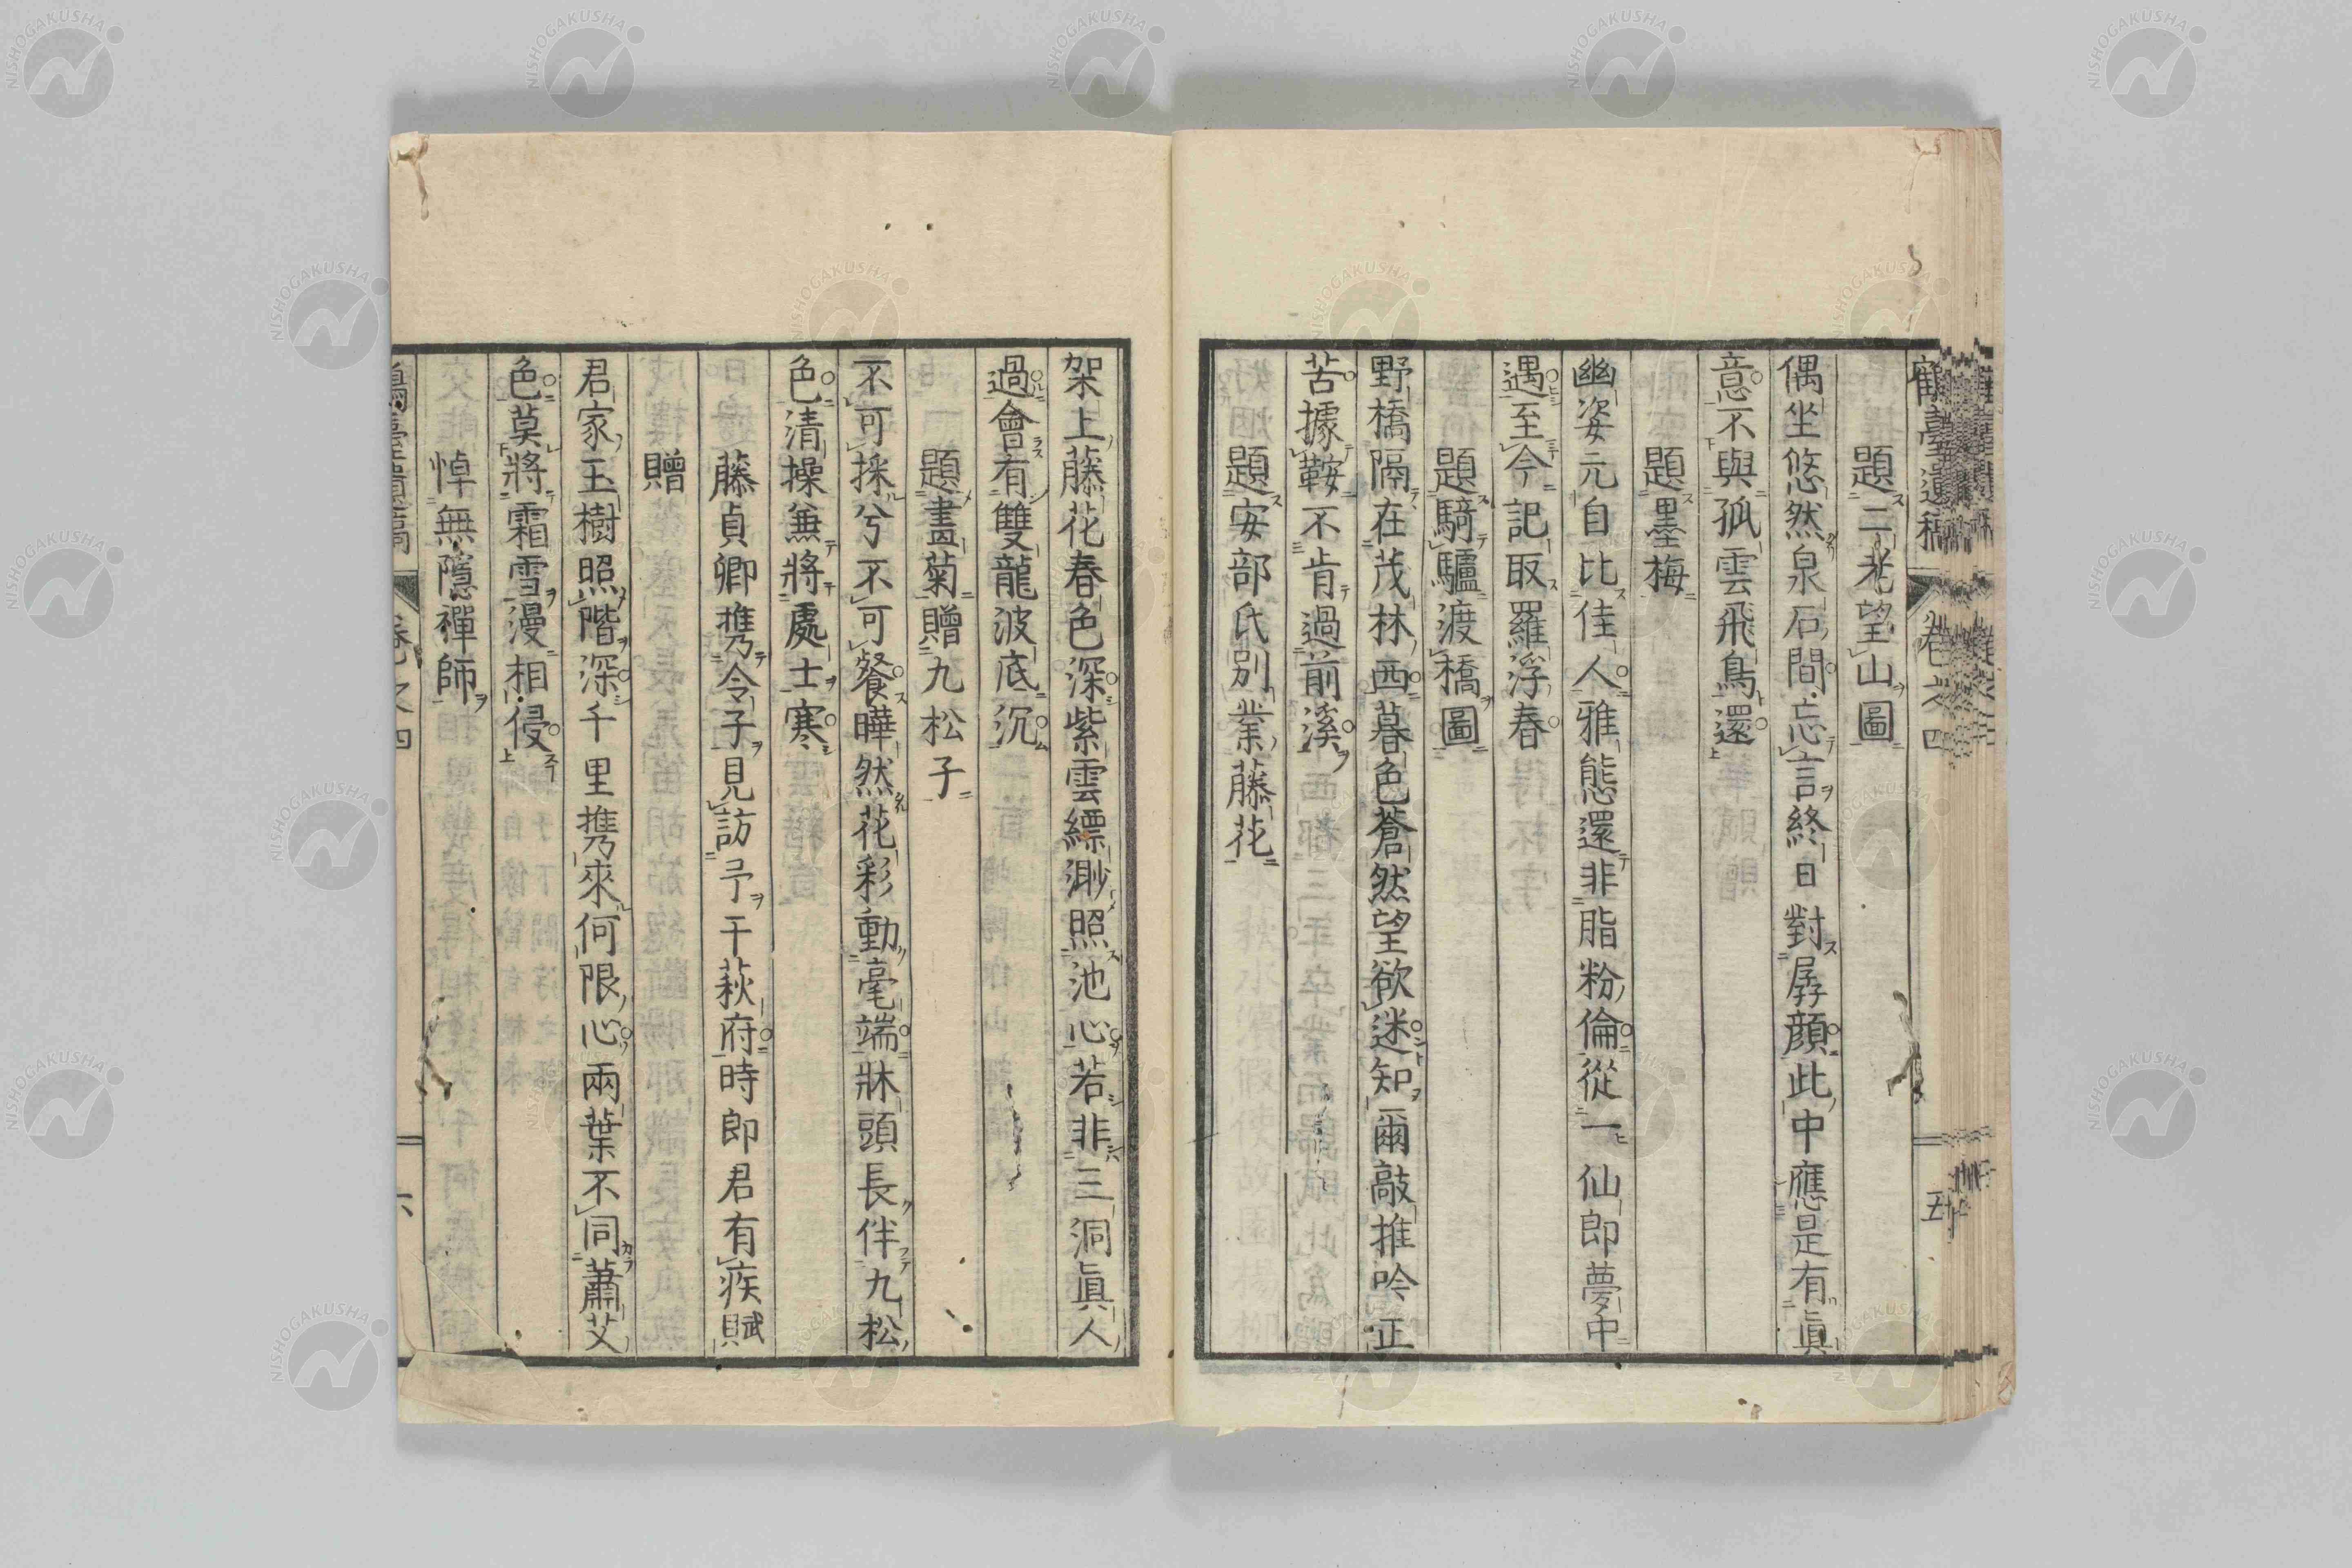 題二老望山圖
偶坐悠然泉石間忘言終日對孱顔此中應是有眞
意不與孤雲飛鳥還
題墨梅
幽姿元自比佳人雅態還非脂粉倫從一仙郎夢中
遇至今記取羅浮春
題騎驢渡橋圖
野橋隔在茂林西暮色蒼然望欲迷知爾敲推吟正
苦據鞍不肯過前溪
題安部氏別業藤花
架上藤花春色深紫雲縹渺照池心若非三洞眞人
過會有雙龍波底沉
題畫菊贈九松子
不可採兮不可餐曄然花彩動毫端牀頭長伴九松
色清操兼將處士寒
藤貞卿携令子見訪予于萩府時郎君有疾賦
贈
君家玉樹照階深千里携來何限心兩葉不同蕭艾
色莫將霜雪漫相侵
悼無隱禪師
卷之四
五
卷之四
六
NISHOGAKUSHA